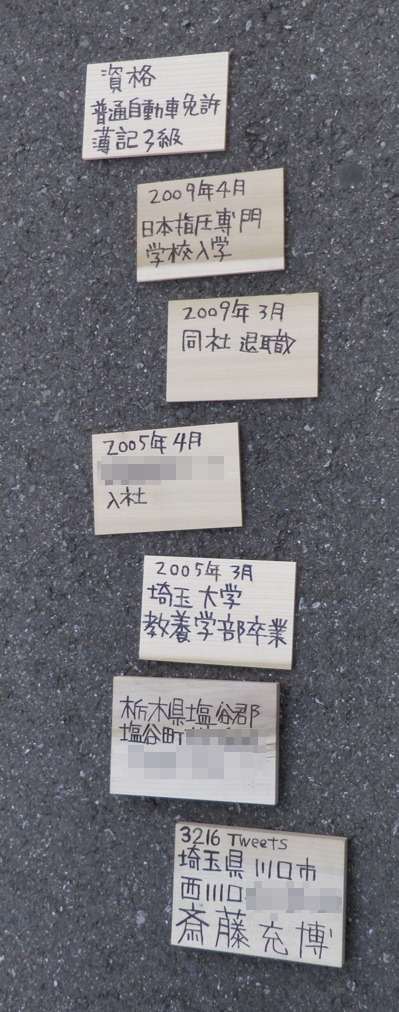 資格
普通自動車免許
簿記3級
2009年4月
日本指圧専門
学校入学
2009年3月
同社退職
2005年4月
入社
2005年3月
埼玉大学
教養学部卒業
栃木県塩谷郡
塩谷町
3216 Tweets
埼玉県川口市
西川口
斎藤充博